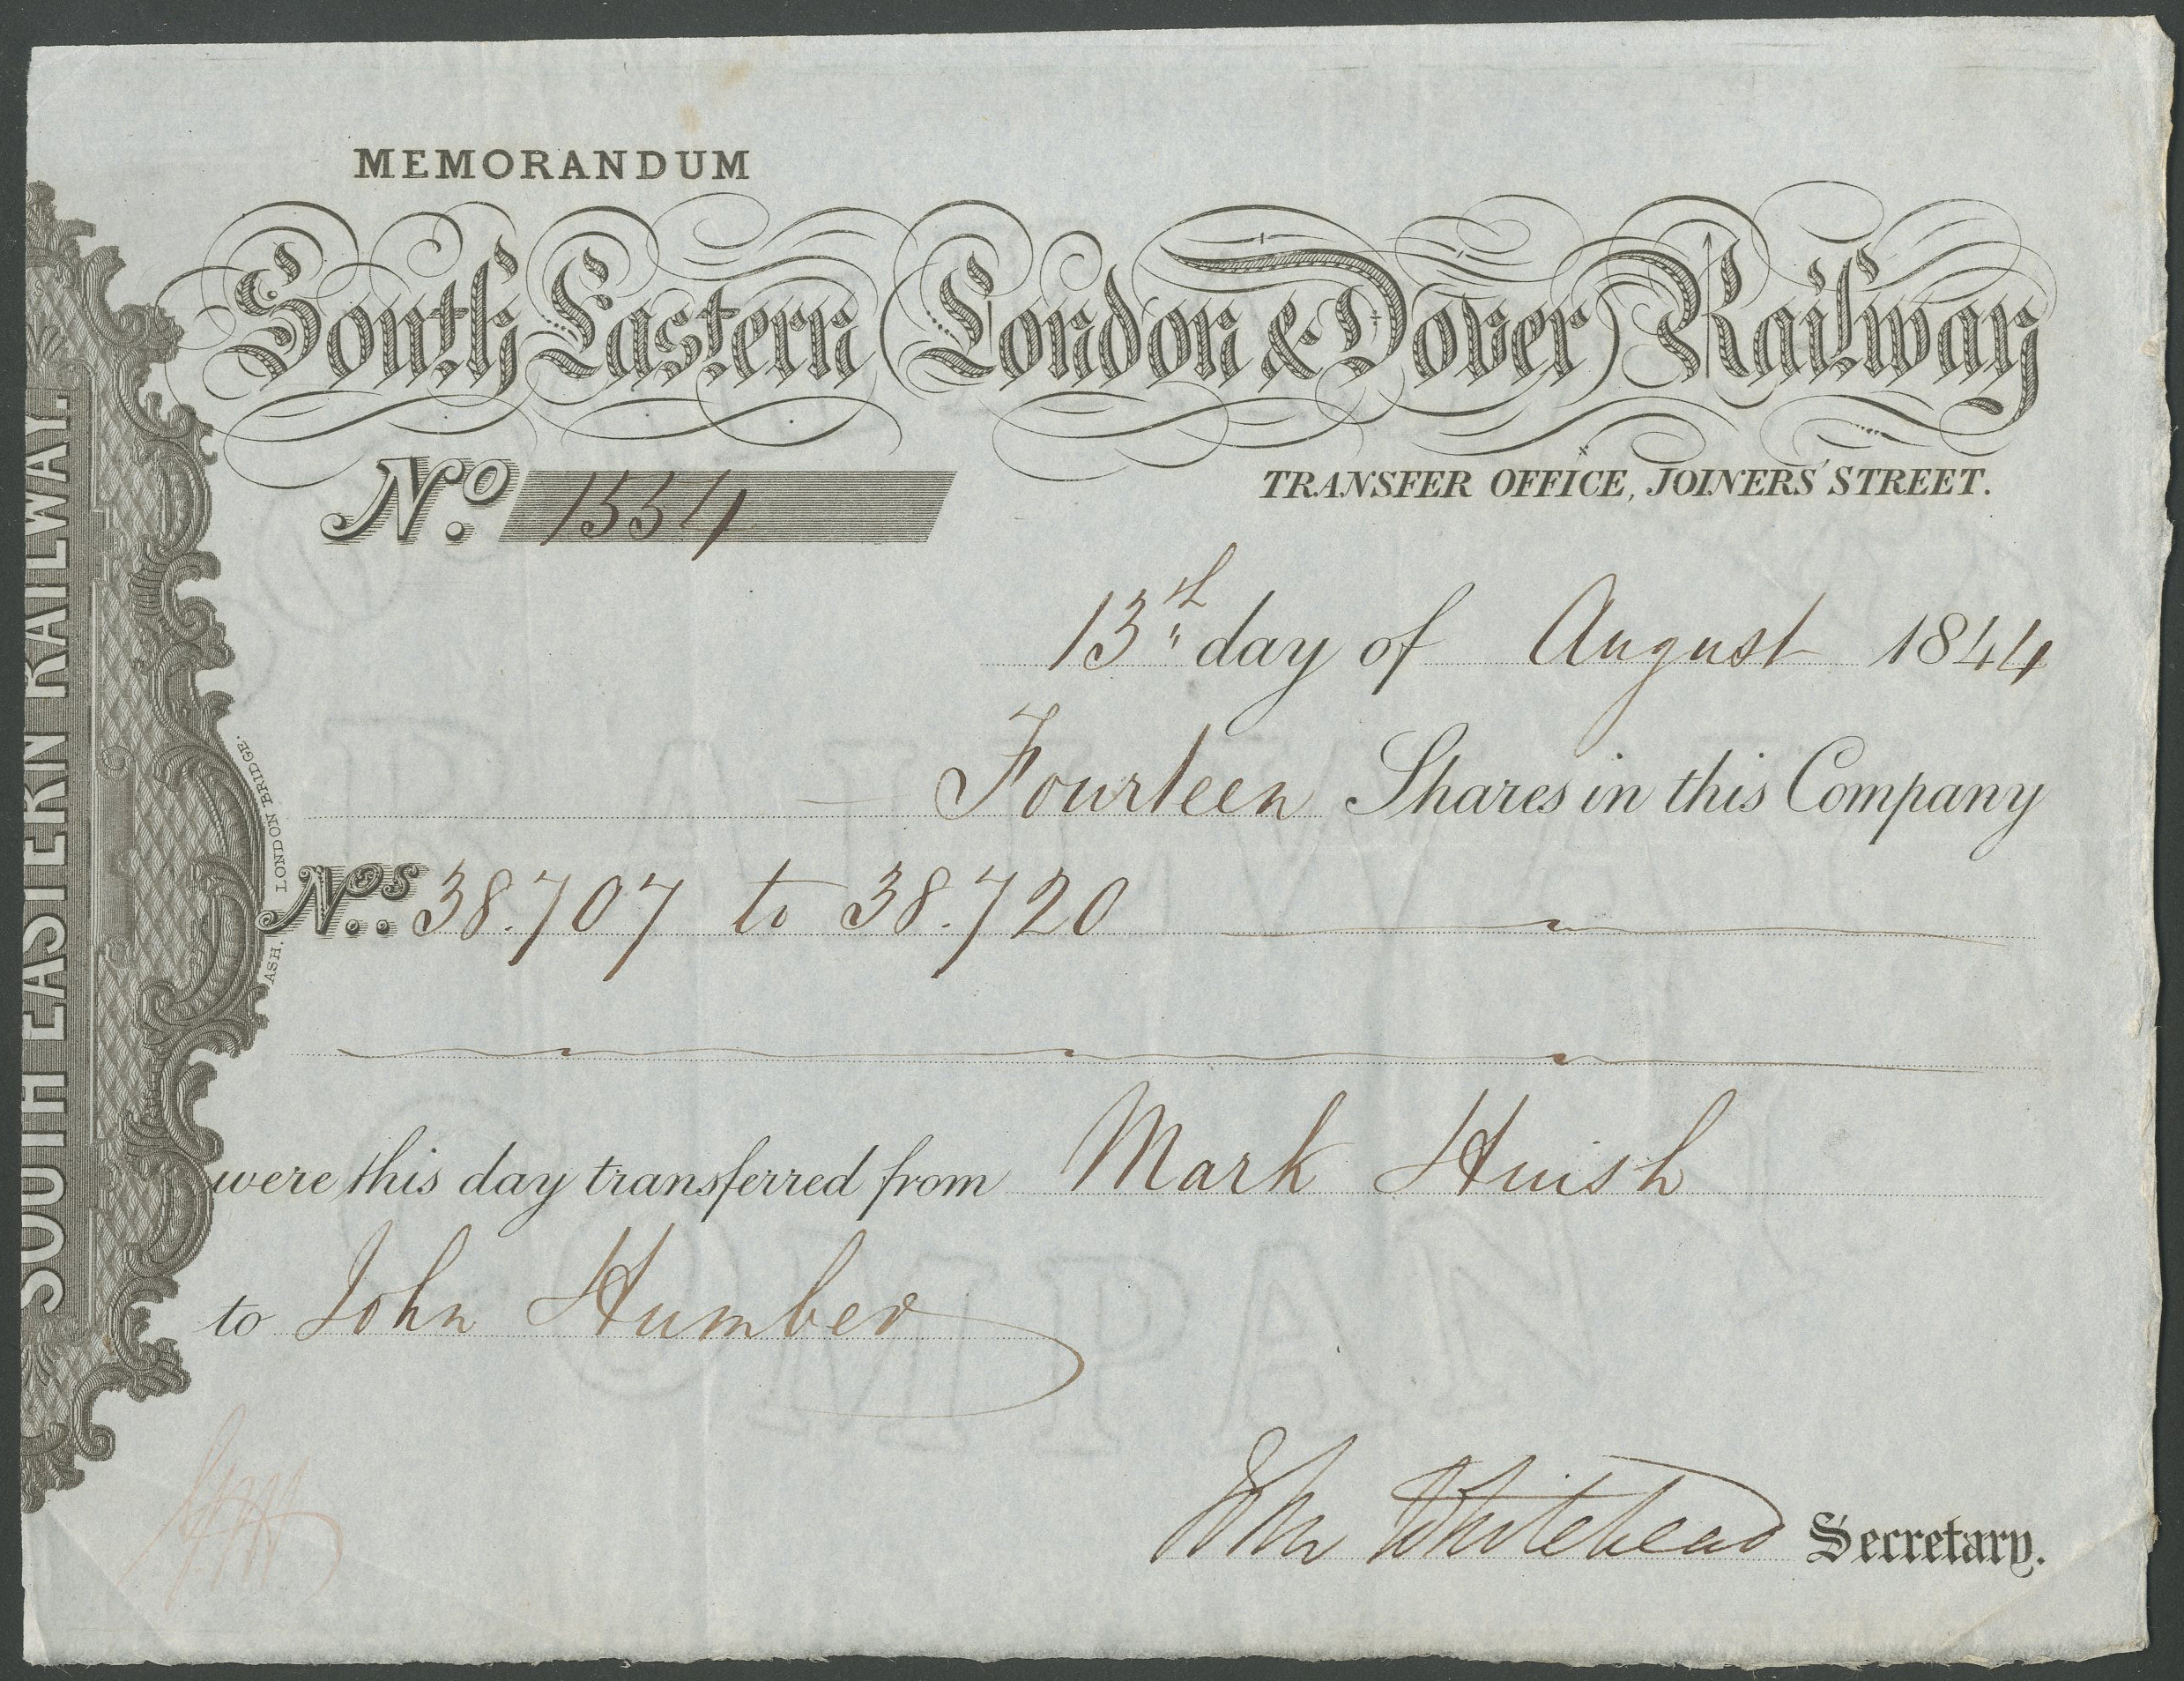 MEMORANDUM
South Eastern (London & Dover) Railway
No. 1554
TRANSFER OFFICE, JOINERS' STREET.
13th day of August 1844
Fourteen Shares in this Company
Nos. 38.707 to 38.720
were this day transferred from Mark Huish
to John Humber
John Whitehead Secretary.
SOUTH EASTERN RAILWAY.
ASH. LONDON BRIDGE.
RAILWAY
COMPAN